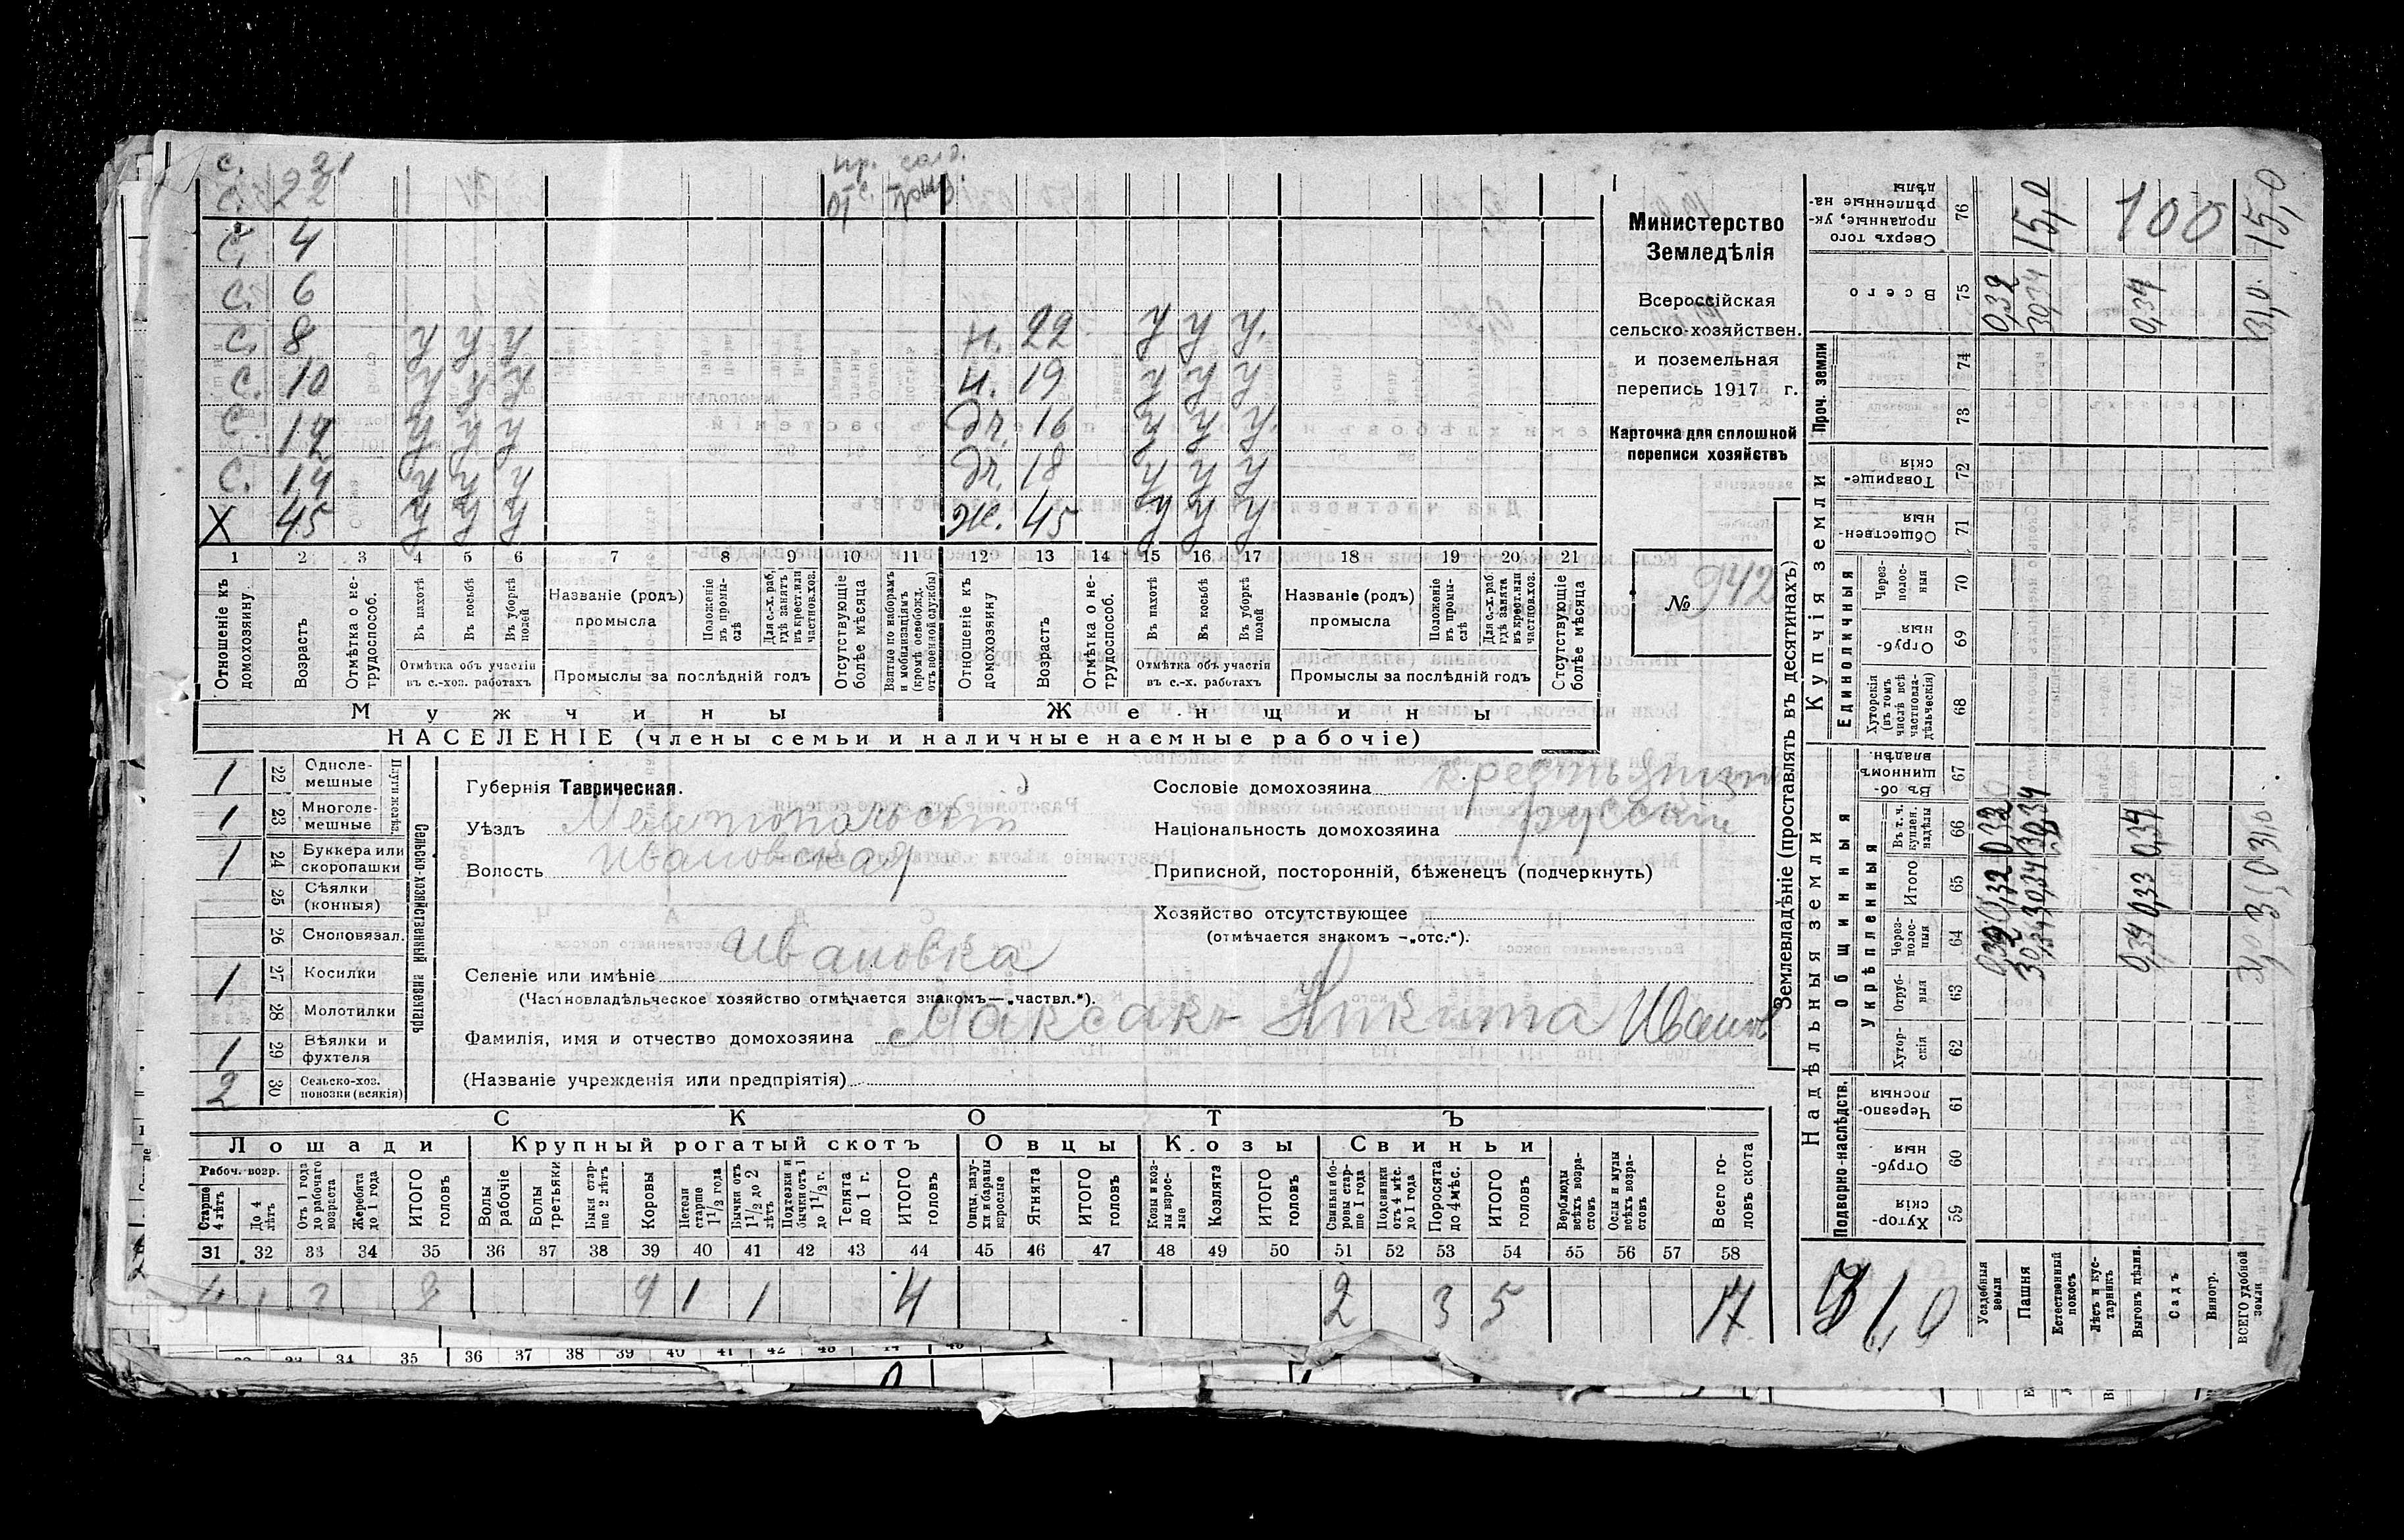 с. 21 пр. солд.
с. 22
с. 4
с. 6
с. 8 у у у н. 22 у у у
с. 10 у у у н. 19 у у у
с. 12 у у у дч. 16 у у у
с. 14 у у у дч. 18 у у у
х 45 у у у ж. 45 у у у
1 2 3 4 5 6 7 8 9 10 11 12 13 14 15 16 17 18 19 20 21
Отношеніе къ домохозяину.
Возрастъ
Отмѣтка о нетрудоспособ.
Въ пахотѣ
Въ косьбѣ
Въ уборкѣ полей
Отмѣтка объ участіи въ с.-хоз. работахъ
Названіе (родъ) промысла
Положеніе въ промыслѣ
Для с.-х. раб. гдѣ занятъ въ крест. или частнов. хоз.
Промыслы за послѣдній годъ
Отсутствующіе болѣе мѣсяца
Взятые по наборамъ и мобилизаціямъ (кромѣ освобожд. отъ военной службы)
Отношеніе къ домохозяину
Возрастъ
Отмѣтка о нетрудоспособ.
Въ пахотѣ
Въ косьбѣ
Въ уборкѣ полей
Отмѣтка объ участіи въ с.-х. работахъ
Названіе (родъ) промысла
Положеніе въ промыслѣ
Для с.-х. раб. гдѣ занята въ крест. или частнов. хоз.
Промыслы за послѣдній годъ
Отсутствующіе болѣе мѣсяца
Мужчины Женщины
НАСЕЛЕНІЕ (члены семьи и наличные наемные рабочіе)
Министерство
Земледѣлія
Всероссійская
сельско-хозяйствен.
и поземельная
перепись 1917 г.
Карточка для сплошной
переписи хозяйствъ
№ 942
Сельско-хозяйственный инвентарь
1 22 Однолемешные
1 23 Многолемешные
1 24 Буккера или скоропашки
25 Сѣялки (конныя)
26 Сноповязал.
1 27 Косилки
28 Молотилки
1 29 Вѣялки и фухтеля
2 30 Сельско-хоз. повозки (всякія)
Губернія Таврическая.
Уѣздъ Мелитопольскій
Волость Ивановская
Сословіе домохозяина крестьянин
Національность домохозяина русскій
Приписной, посторонній, бѣженецъ (подчеркнуть)
Хозяйство отсутствующее
(отмѣчается знакомъ —„отс.“).
Селеніе или имѣніе Ивановка
(Частновладѣльческое хозяйство отмѣчается знакомъ—„частвл.“).
Фамилія, имя и отчество домохозяина Максакъ Никита Иванов
(Названіе учрежденія или предпріятія)
СКОТЪ
Лошади Крупный рогатый скотъ Овцы Козы Свиньи
Рабоч. возр.
Старше 4 лѣтъ
До 4 лѣтъ
Отъ 1 года до рабочаго возраста
Жеребята до 1 года
ИТОГО головъ
Волы рабочіе
Волы третьяки
Быки старше 2 лѣтъ
Коровы
Нетели старше 1 1/2 года
Бычки отъ 1 1/2 до 2 лѣтъ
Подтелки и бычки отъ 1 до 1 1/2 г.
Телята до 1 г.
ИТОГО головъ
Овцы, валухи и бараны взрослые
Ягнята
ИТОГО головъ
Козы и козлы взрослые
Козлята
ИТОГО головъ
Свиньи и боровы старше 1 года
Подсвинки отъ 4 мѣс. до 1 года
Поросята до 4 мѣс.
ИТОГО головъ
Верблюды всѣхъ возрастовъ
Ослы и мулы всѣхъ возрастовъ
Всего головъ скота
31 32 33 34 35 36 37 38 39 40 41 42 43 44 45 46 47 48 49 50 51 52 53 54 55 56 57 58
1 1 4 2 3 5 17
Землевладѣніе (проставлять въ десятинахъ)
Надѣльныя земли
Купчія земли
Проч. земли
Подворно-наслѣдств.
Общинныя
Укрѣпленныя
Единоличныя
Хуторскія 59
Отрубныя 60
Черезполосныя 61
Хуторскія 62
Отрубныя 63
Черезполосныя 64
Итого 65
Въ т. ч. куплен. надѣлы 66
Въ общинномъ владѣн. 67
Хуторскія (въ томъ числѣ всѣ частновладѣльческія) 68
Отрубныя 69
Черезполосныя 70
Общественныя 71
Товарищескія 72
73
74
Всего 75
Сверхъ того проданные, укрѣпленные надѣлы 76
Усадебныя земли 0,32 0,32
Пашня 30,34 30,34 30,34 15,0
Естественный покосъ
Лѣсъ и кустарникъ
Выгонъ дѣлин. 0,34 0,33 0,34 0,34 100
Садъ
Виногр.
ВСЕГО удобной земли 31,0 31,0 31,0 31,0 15,0
31,0